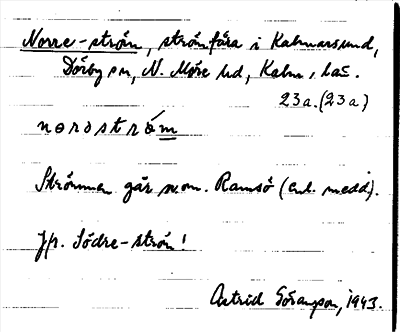 Norre-ström, strömfåra i Kalmarsund,
Dörby sn, N. Möre hd, Kalm. län.
23a.(23a)
nørdström
Strömmen går n.om. Ramsö (enl. medd).
Jfr. Södre-ström!
Astrid Göransson, 1943.